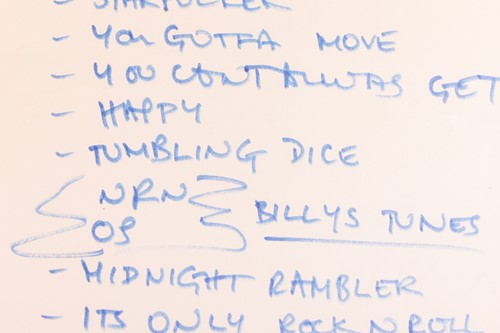 - STARFUCKER
- YOU GOTTA MOVE
- YOU CONT ALLWAS GET
- HAPPY
- TUMBLING DICE
NRN
OS
BILLYS TUNES
- MIDNIGHT RAMBLER
- ITS ONLY ROCK N ROLL